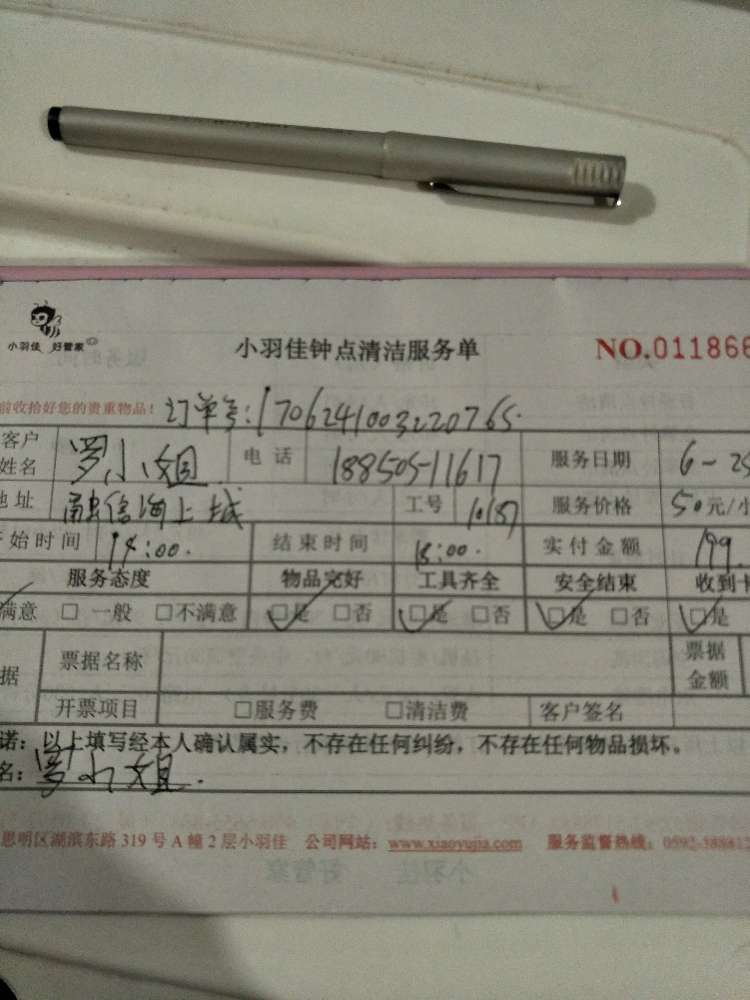 小羽佳 好管家
小羽佳钟点清洁服务单
NO.011866
前收拾好您的贵重物品！ 订单号：170624100322076S
客户姓名 罗小姐 电话 188505-11617 服务日期 6-25
地址 融信海上城 工号 10187 服务价格 50元/小
开始时间 14:00. 结束时间 18:00. 实付金额 199.
服务态度 物品完好 工具齐全 安全结束 收到卡
满意 □ 一般 □不满意 □是 □否 □是 □否 □是 □否 □是
据 票据名称 票据金额
开票项目 □服务费 □清洁费 客户签名
诺：以上填写经本人确认属实，不存在任何纠纷，不存在任何物品损坏。
名：罗小姐.
思明区湖滨东路 319 号 A 幢 2 层小羽佳 公司网站：www.xiaoyujia.com 服务监督热线：0592-388812